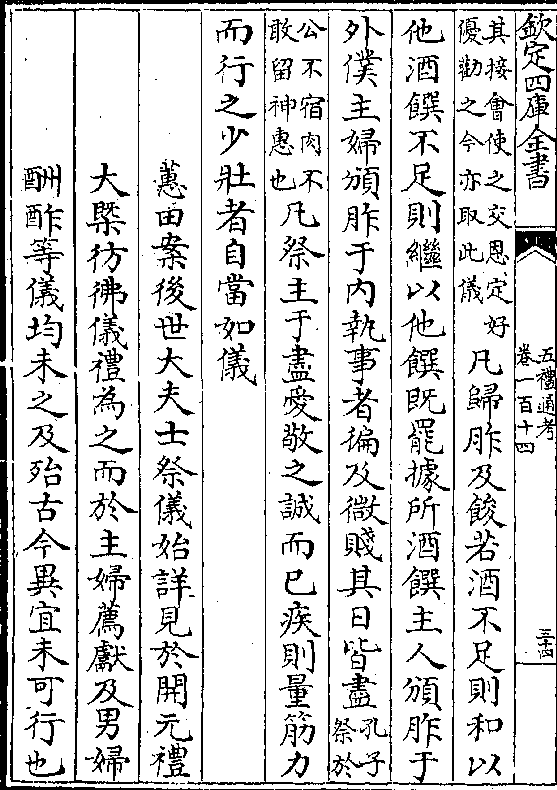 欽定四庫全書
五禮通考
卷一百十四
三十四
其接會使之交恩定好
優勸之今亦取此儀
凡歸胙及餕若酒不足則和以
他酒饌不足則繼以他饌既罷據所酒饌主人頒胙于
外僕主婦頒胙于内執事者徧及微賤其日皆盡
孔子祭於
公不宿肉不
敢留神惠也
凡祭主于盡愛敬之誠而已疾則量筋力
而行之少壯者自當如儀
蕙田案後世大夫士祭儀始詳見於開元禮
大槩彷彿儀禮為之而於主婦薦獻及男婦
酬酢等儀均未之及殆古今異宜未可行也